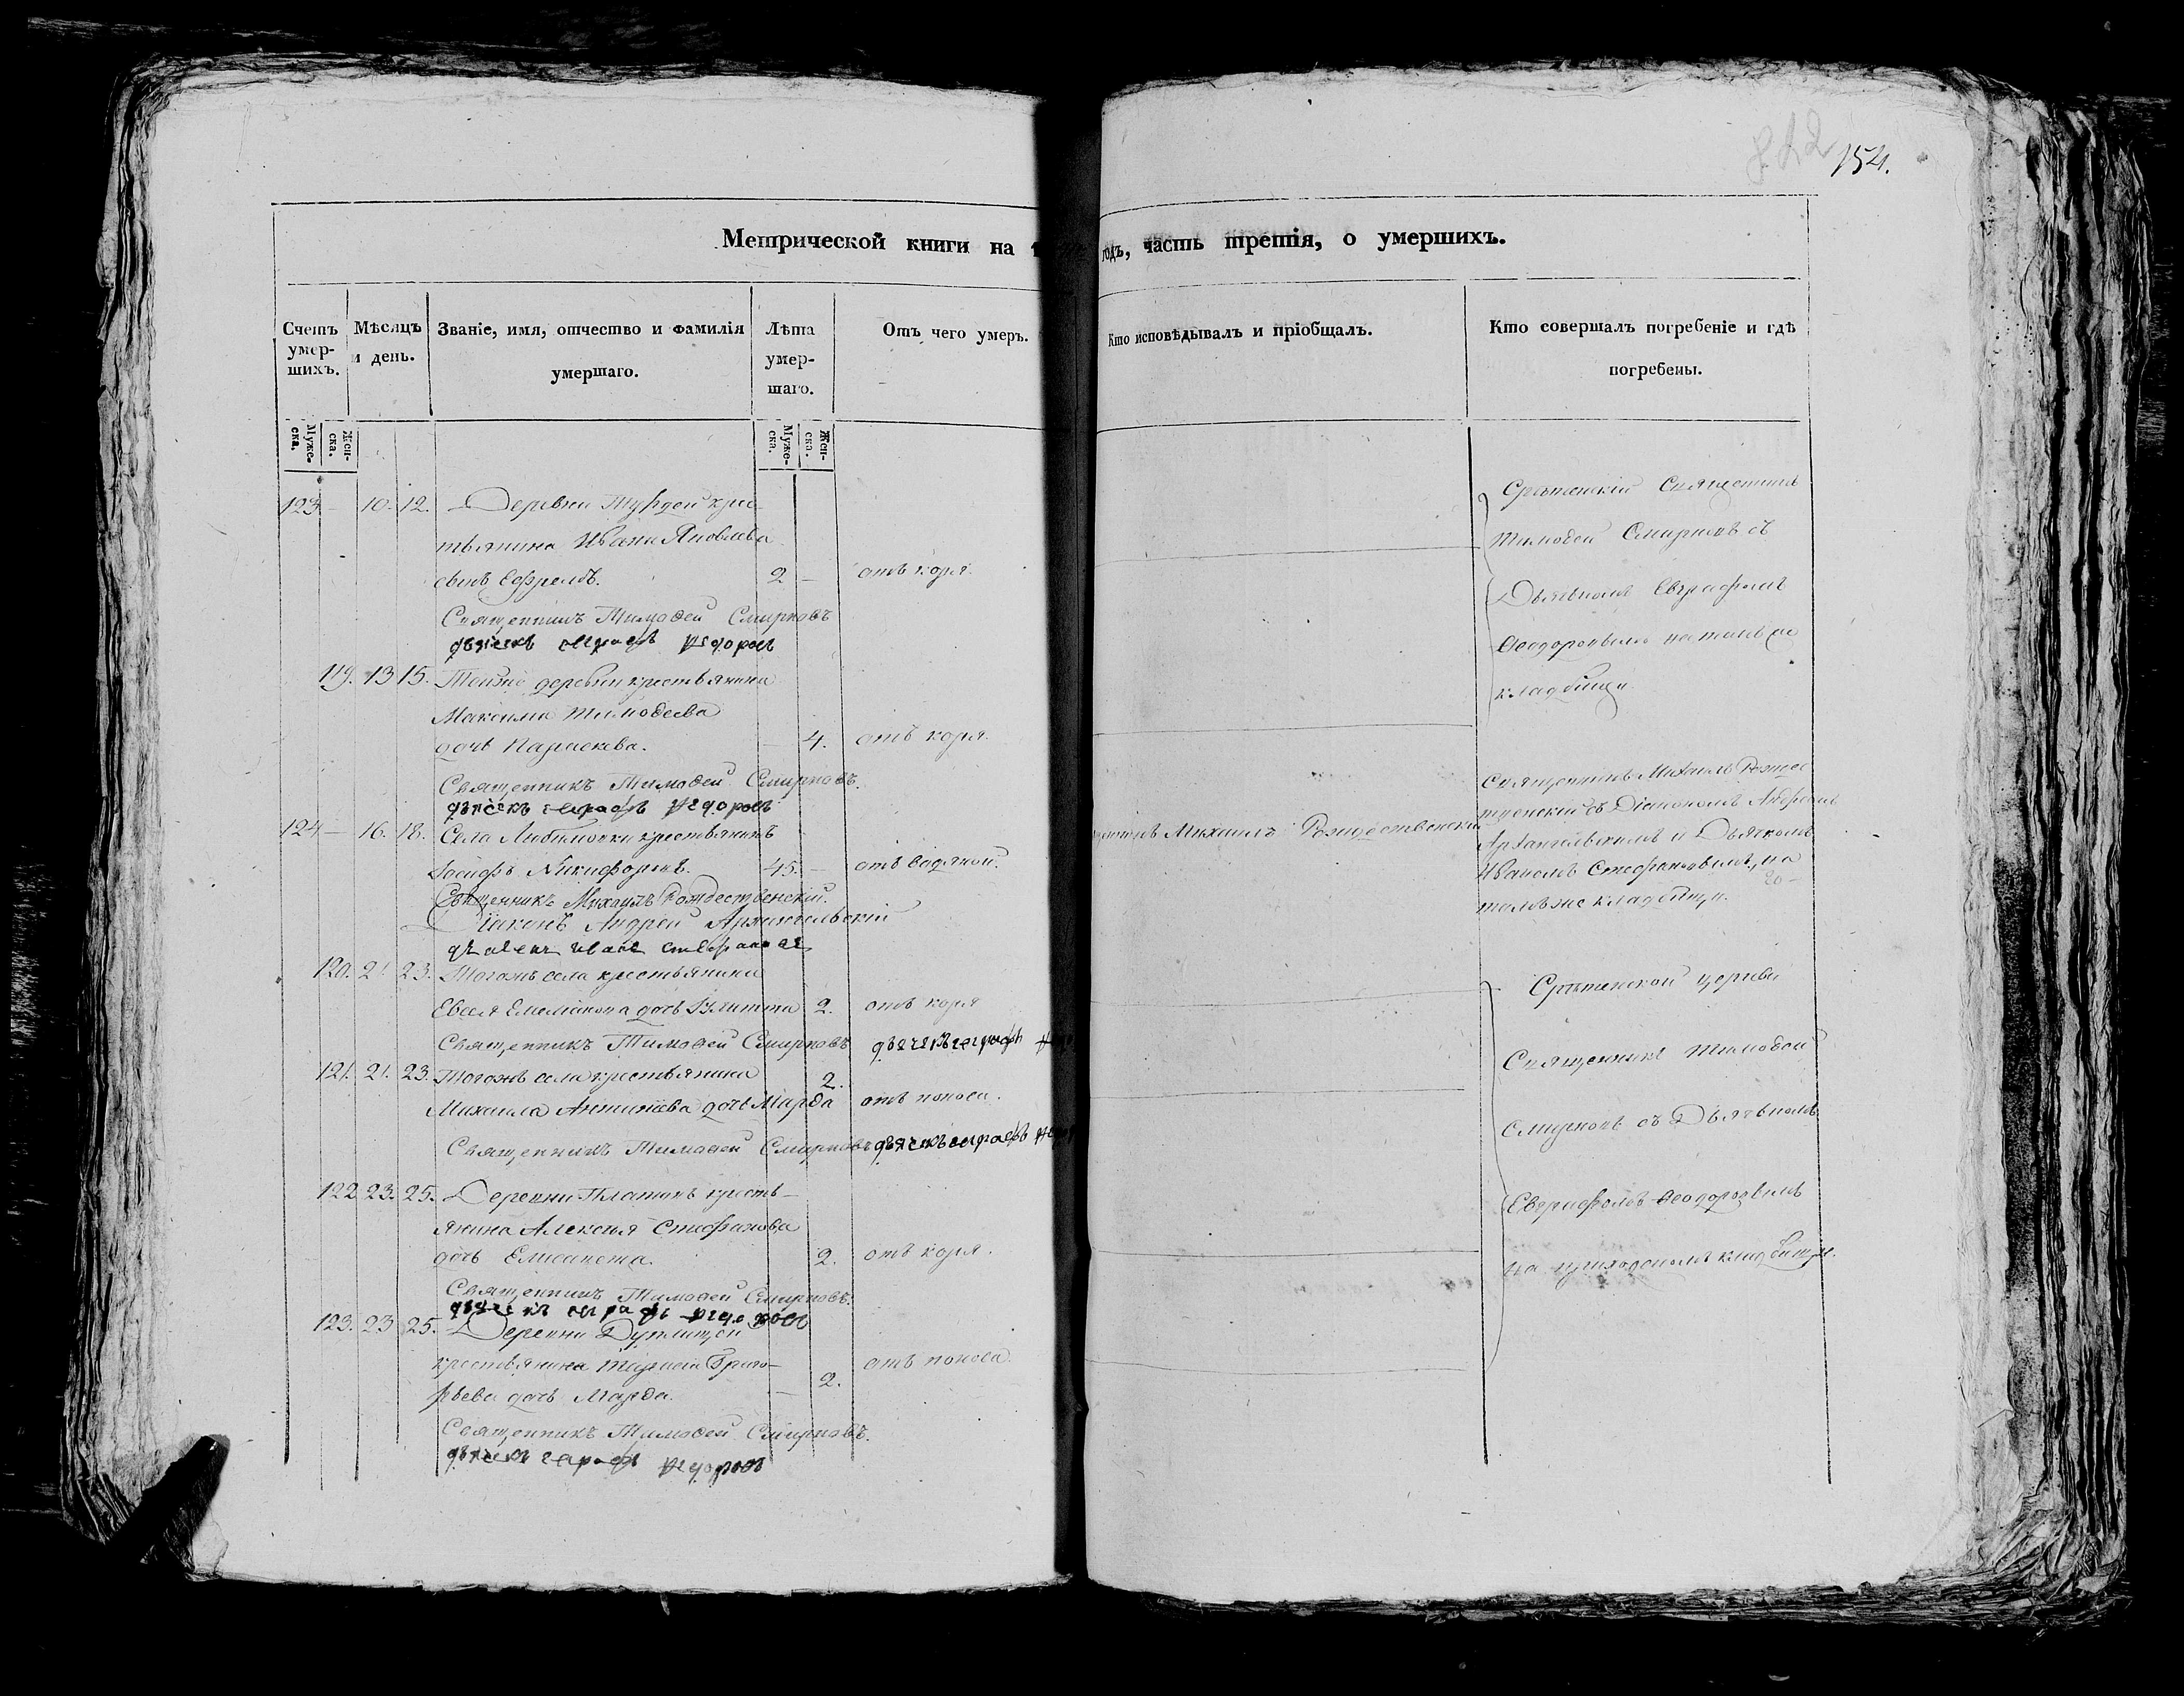 842 154.
Метрической книги на 1 годъ, часть третія, о умершихъ.
Счетъ умер-шихъ.
Мѣсяцъ и день.
Званіе, имя, отчество и фамилія умершаго.
Лѣта умер-шаго.
Отъ чего умеръ.
Кто исповѣдывалъ и пріобщалъ.
Кто совершалъ погребеніе и гдѣ погребены.
Муже-ска.
Жен-ска.
Муже-ска.
Жен-ска.
123. – 10. 12. Деревни Турдей кре-
стьянина Ивана Яковлева
сынъ Ефремъ. 2 – отъ коря.
Священникъ Тимоѳей Смирновъ
дьячекъ евграфъ ѳедоровъ
Срѣтенскій Священникъ
Тимоѳей Смирновъ съ
Дьячкомъ Евграфомъ
Ѳеодоровымъ на томъ же
кладбищи
119. 13 15. Тойже деревни крестьянина
Максима Тимоѳеева
дочь Параскева. – 4. отъ коря.
Священникъ Тимоѳей Смирновъ.
дьячекъ евграфъ ѳедоровъ
124 – 16. 18. Села Любимовки крестьянинъ
Іосифъ Никифоровъ. 45. – отъ водяной.
Михаилъ Рождественскій
Священникъ Михаилъ Рождественскій.
Діаконъ Андрей Архангельскій
дьячекъ иванъ стефановъ
Священникъ Михаилъ Рождес
твенскій съ Діакономъ Андреемъ
Архангельскимъ и Дьячкомъ
Иваномъ Стефановымъ, на
томъ же кладбищи.
120. 21 23. Тогожъ села крестьянина
Евсея Емельянова дочь 2. отъ коря
Священникъ Тимоѳей Смирновъ дьячекъ евграфъ
121. 21. 23. Тогожъ села крестьянина
Михаила Антипьева дочь Марѳа 2. отъ поноса.
Священникъ Тимоѳей Смирновъ дьячекъ евграфъ
122 23. 25. Деревни Платонъ кресть-
янина Алексѣя Стефанова
дочь Елисавета. 2. отъ коря.
Священникъ Тимоѳей Смирновъ.
дьячекъ евграфъ ѳедоровъ
Срѣтенской церкви
Священникъ Тимоѳей
Смирновъ съ Дьячкомъ
Евграфомъ Ѳеодоровымъ
на приходскомъ кладбищи.
123. 23 25. Деревни
крестьянина Григо-
рьева дочь Марѳа. – 2. отъ поноса.
Священникъ Тимоѳей Смирновъ.
дьячекъ евграфъ ѳедоровъ